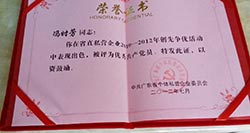 荣誉证书
HONORARY CREDENTIAL
冯封芳 同志:
你在省直私营企业2010—2012年创先争优活动
中表现出色，被评为优秀共产党员。特发此证，以
资鼓励。
中共广东省个体私营企业委员会
二〇一二年七月